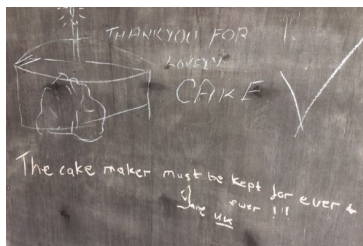 THANKYOU FOR
LOVELY
CAKE
The cake maker must be kept for ever &
ever !!!